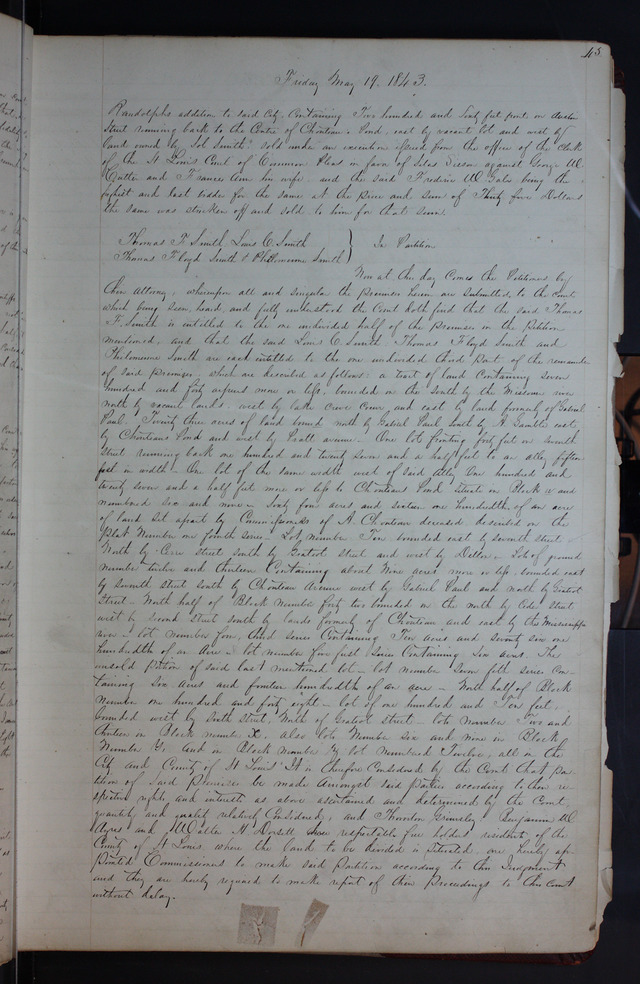 45
Friday May 19, 1843.
Randolphs addition to said City. Containing Two hundred and Sixty feet front on
Street running back to the Centre of Chouteau's Pond, east by vacant lot and west by
land owned by Sol Smith: sold under an execution issued from the office of the Clerk
of the St Louis Court of Common Pleas in favor of Silas against George W
and Frances Ann his wife, and the said Frederic W Gates being the
highest and last bidder for the same at the price and sum of Thirty five Dollars
the same was stricken off and sold to him for that sum.
Thomas F. Smith Louis C. Smith } In Partition
Thomas Floyd Smith & Philomenine Smith
Now at this day comes the Petitioners by
their attorney, whereupon all and singular the premises herein are submitted to the Court
which being seen, heard, and fully understood the Court doth find that the said Thomas
F. Smith is entitled to the one undivided half of the premises in the petition
mentioned, and that the said Louis C. Smith Thomas Floyd Smith and
Philomenine Smith are each intitled to the one undivided third part of the remainder
of said premises, which are described as follows: a tract of land Containing seven
hundred and forty arpens more or less, bounded on the South by the Missouri river
north by vacant lands, west by lake and east by land formerly of Gabriel
Paul. Twenty three acres of land bound north by Gabriel Paul South by A Gamble east
by Chouteaus Pond and west by Pratt avenue. One lot fronting forty feet on Seventh
Street running back one hundred and twenty seven and a half feet to an alley fifteen
feet in width One lot of the same width west of said alley One hundred and
twenty seven and a half feet more or less to Chouteaus Pond situate in Block and
numbered six and nine Sixty four acres and sixteen one hundredths of an acre
of land set apart by Commissioners of A Chouteau deceased described on the
Plat Number one fourth series Lot number Ten bounded east by seventh street
North by Cerre street South by Gratiot Street and west by Lots of ground
number twelve and thirteen Containing about Nine acres more or less, bounded east
by seventh street South by Chouteau Avenue west by Gabriel Paul and north by Gratiot
Street North half of Block Number forty two bounded on the north by Cedar Street
west by Second Street South by lands formerly of Chouteau and east by the Mississippi
river lot number four, third series Containing Ten acres and Seventy six one
hundredth of an Acre lot number five first series Containing Six acres. The
unsold portion of said last mentioned lot lot number Seven fifth series Con-
taining six acres and fourteen hundredths of an acre North half of Block
Number one hundred and forty eight lot of one hundred and Ten feet
bounded west by Sixth Street, North of Gratiot Street lots number Two and
thirteen in Block number X. also lots Number six and nine in Block
Number Y, and in Block number lot numbered Twelve, all in the
City and County of St Louis: It is therefore Considered by the Court that par
tition of said Premises be made amongst said parties according to their re
spective rights and interests as above ascertained and determined by the Court,
quantity and quality relatively Considered, and Thornton Grimsley Benjamin W
Ayres and Walter H Dorsett three respectable free holders resident of the
County of St Louis where the land to be divided is situated, are hereby ap
pointed Commissioners to make said Partition according to this Judgment
and they are hereby required to make report of their Proceedings to this Court
without delay.